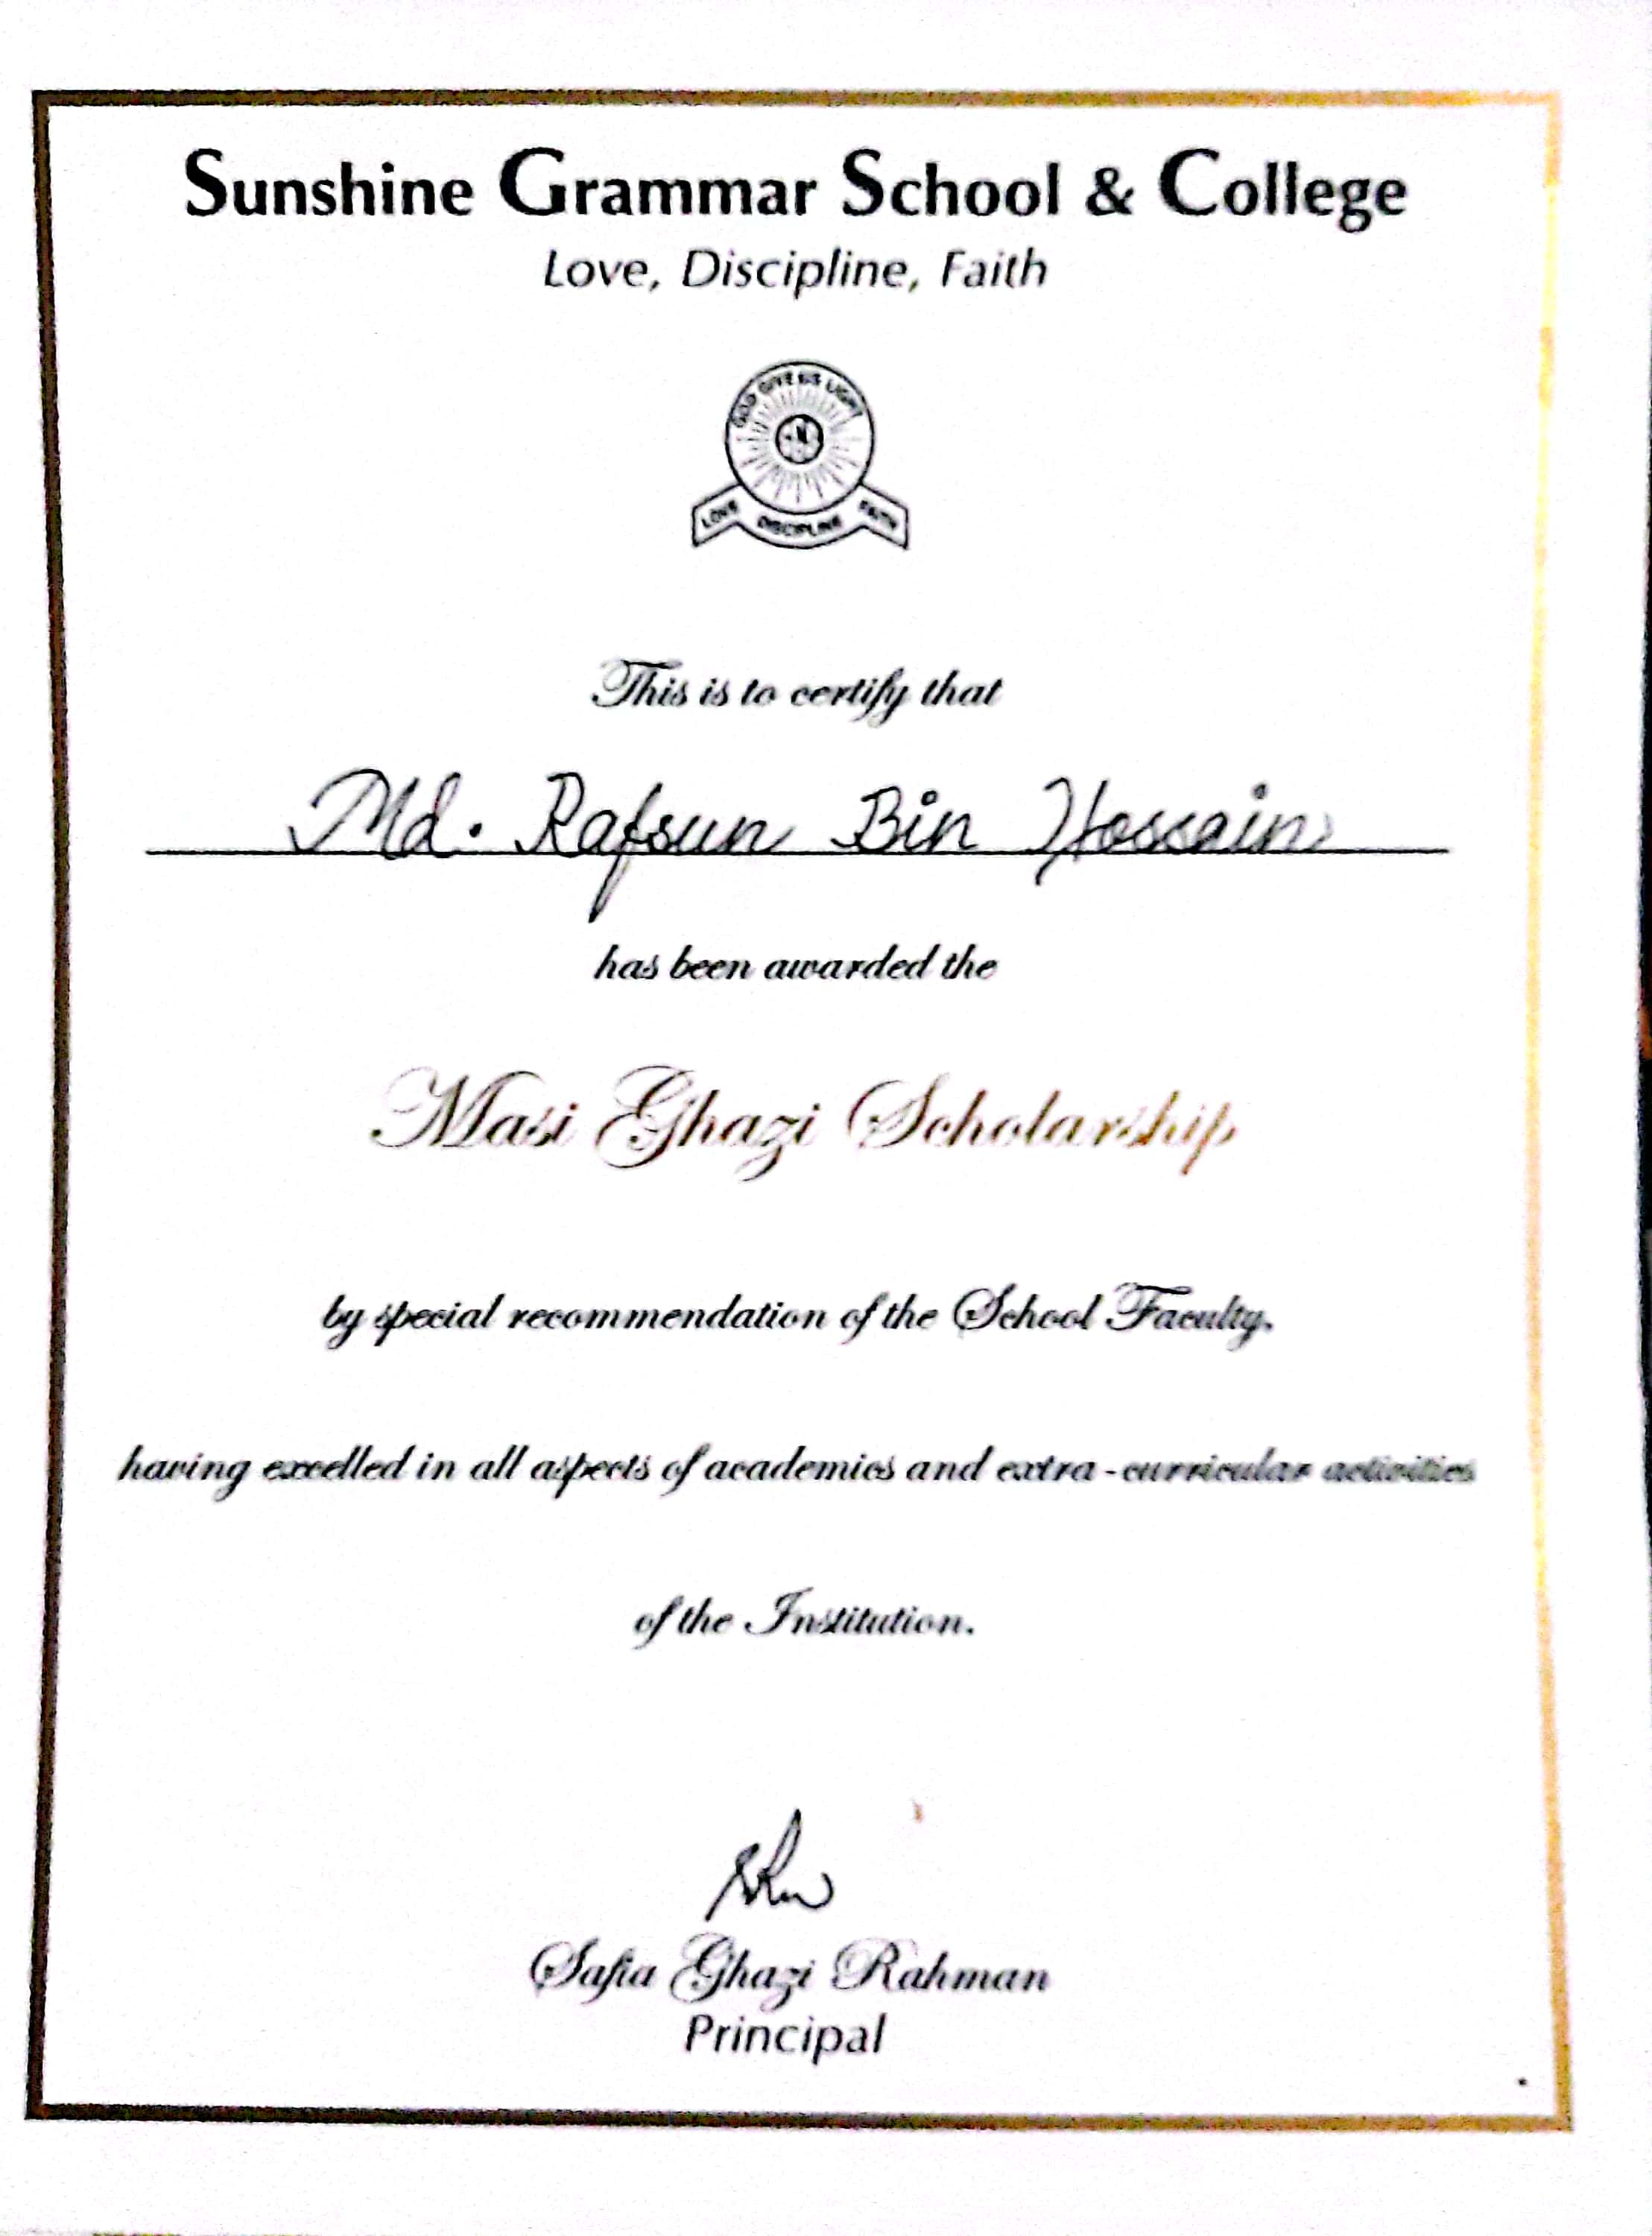 Sunshine Grammar School & College
Love, Discipline, Faith
GOD GIVE US LIGHT
LOVE DISCIPLINE FAITH
This is to certify that
Md. Rafsun Bin Hossain
has been awarded the
Masi Ghazi Scholarship
by special recommendation of the School Faculty.
having excelled in all aspects of academics and extra-curricular activities
of the Institution.
Safia Ghazi Rahman
Principal